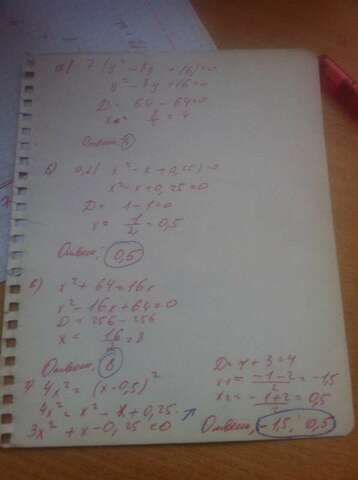 а) 7(y² - 8y + 16) = 0
y² - 8y + 16 = 0
D = 64 - 64 = 0
x = 8/2 = 4
Ответ: 4
б) 0,2(x² - x + 0,25) = 0
x² - x + 0,25 = 0
D = 1 - 1 = 0
x = 1/2 = 0,5
Ответ: 0,5
в) x² + 64 = 16x
x² - 16x + 64 = 0
D = 256 - 256
x = 16/2 = 8
Ответ: 8
4x² = (x - 0,5)²
4x² = x² - x + 0,25
3x² + x - 0,25 = 0
D = 1 + 3 = 4
x1 = -1-2/2 = -1,5
x2 = -1+2/2 = 0,5
Ответ: -1,5, 0,5